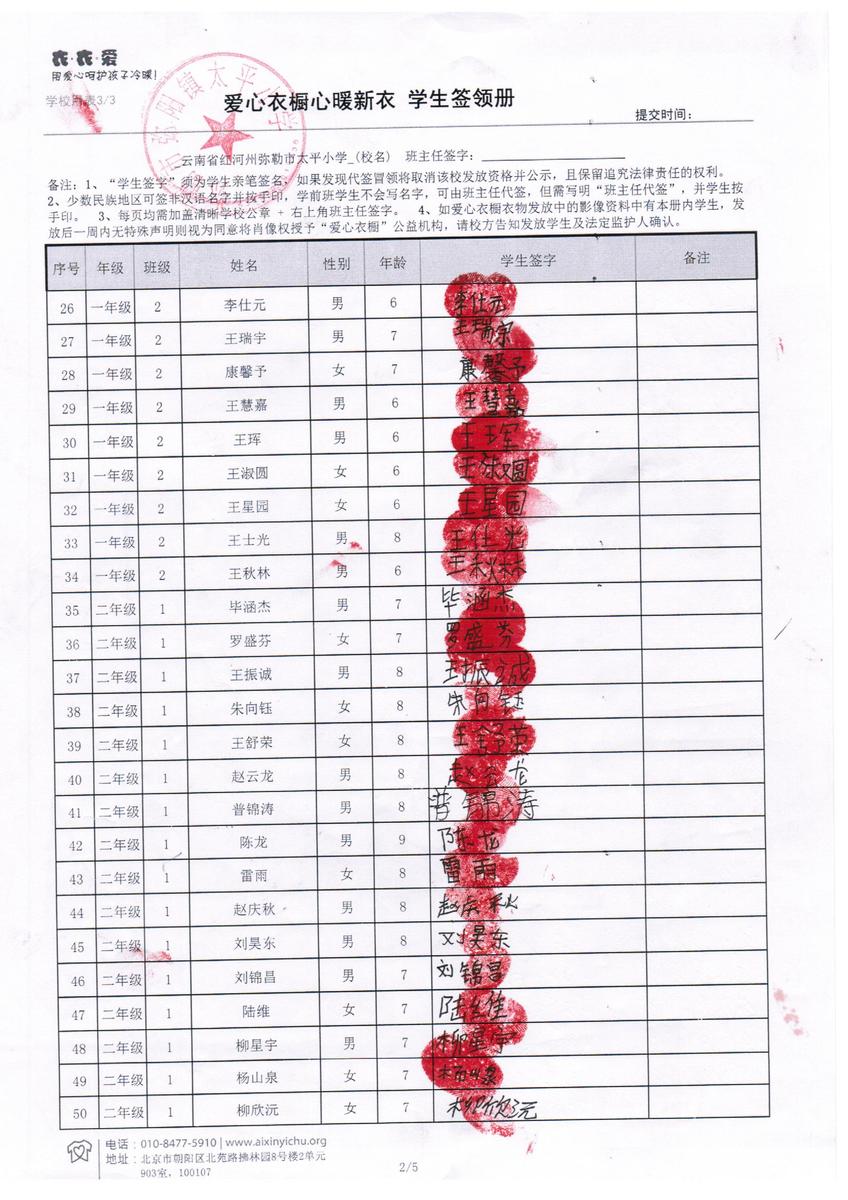 衣·衣·爱
用爱心呵护孩子冷暖!
学校用表3/3
弥阳镇太平小学
爱心衣橱心暖新衣 学生签领册
提交时间:
云南省红河州弥勒市太平小学_(校名) 班主任签字:
备注: 1、“学生签字”须为学生亲笔签名, 如果发现代签冒领将取消该校发放资格并公示, 且保留追究法律责任的权利。
2、少数民族地区可签非汉语名字并按手印, 学前班学生不会写名字, 可由班主任代签, 但需写明“班主任代签”, 并学生按
手印。 3、每页均需加盖清晰学校公章 + 右上角班主任签字。 4、如爱心衣橱衣物发放中的影像资料中有本册内学生, 发
放后一周内无特殊声明则视为同意将肖像权授予“爱心衣橱”公益机构, 请校方告知发放学生及法定监护人确认。
序号 年级 班级 姓名 性别 年龄 学生签字 备注
26 一年级 2 李仕元 男 6 李仕元
27 一年级 2 王瑞宇 男 7 王瑞宇
28 一年级 2 康馨予 女 7 康馨予
29 一年级 2 王慧嘉 男 6 王慧嘉
30 一年级 2 王珲 男 6 王珲
31 一年级 2 王淑圆 女 6 王淑圆
32 一年级 2 王星园 女 6 王星园
33 一年级 2 王士光 男 8 王仕光
34 一年级 2 王秋林 男 6 王秋林
35 二年级 1 毕涵杰 男 7 毕涵杰
36 二年级 1 罗盛芬 女 7 罗盛芬
37 二年级 1 王振诚 男 8 王振诚
38 二年级 1 朱向钰 女 8 朱向钰
39 二年级 1 王舒荣 女 8 王舒荣
40 二年级 1 赵云龙 男 8 赵云龙
41 二年级 1 普锦涛 男 8 普锦涛
42 二年级 1 陈龙 男 9 陈龙
43 二年级 1 雷雨 女 8 雷雨
44 二年级 1 赵庆秋 男 8 赵庆秋
45 二年级 1 刘昊东 男 8 刘昊东
46 二年级 1 刘锦昌 男 7 刘锦昌
47 二年级 1 陆维 女 7 陆维
48 二年级 1 柳星宇 男 7 柳星宇
49 二年级 1 杨山泉 女 7 杨山泉
50 二年级 1 柳欣沅 女 7 柳欣沅
电话: 010-8477-5910 | www.aixinyichu.org
地址: 北京市朝阳区北苑路拂林园8号楼2单元
903室, 100107
2/5